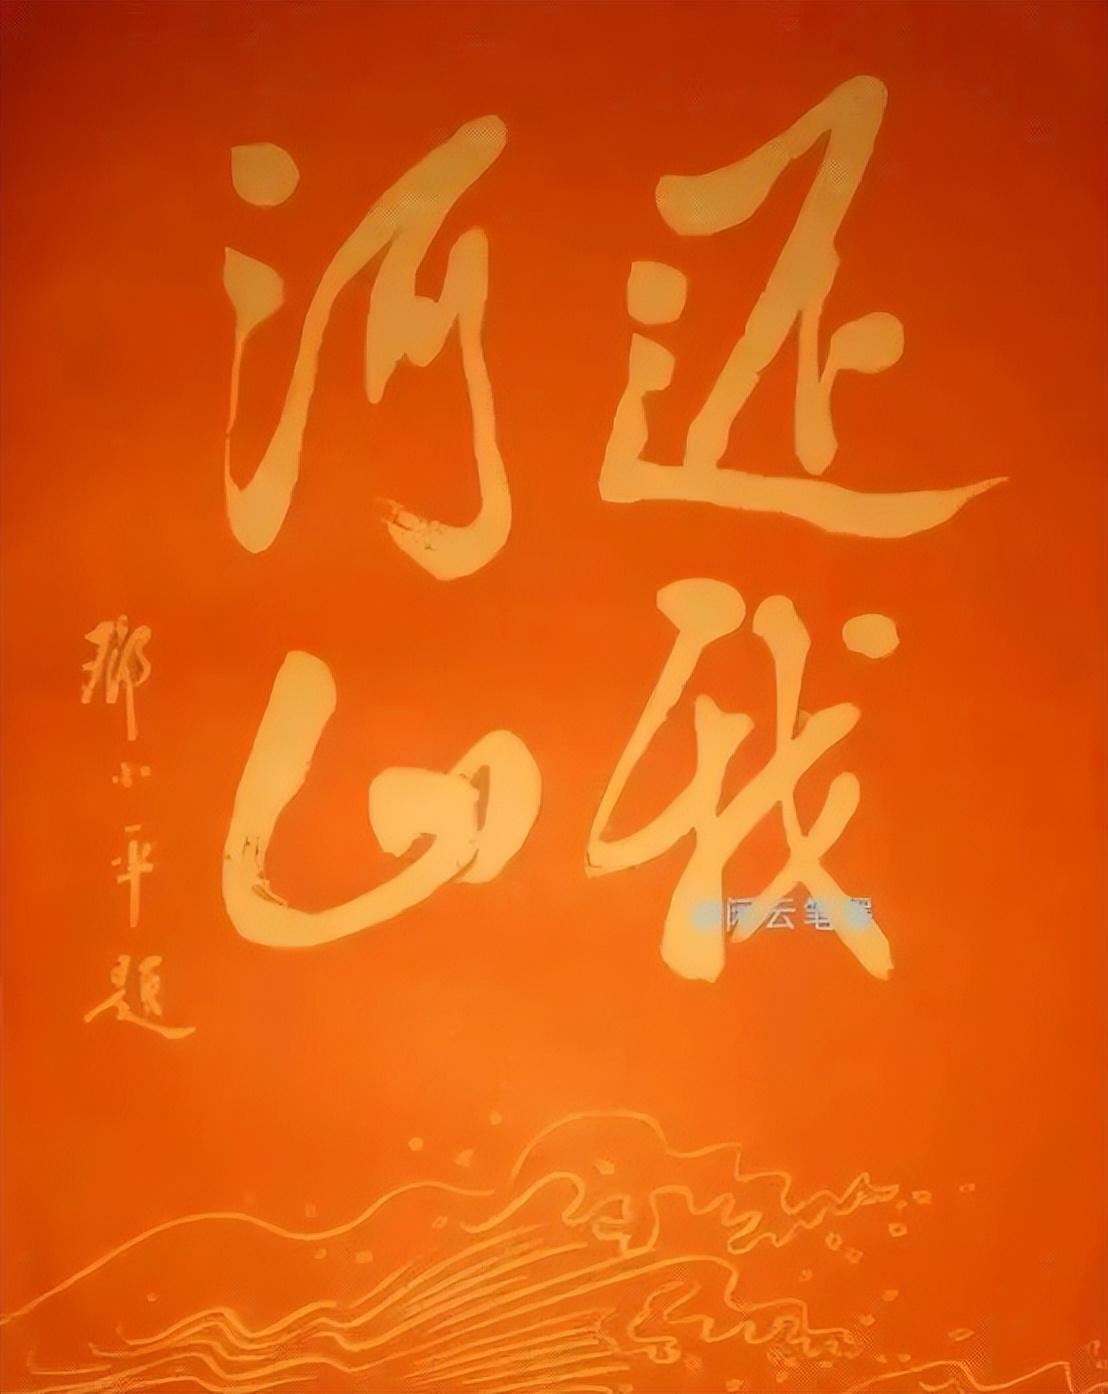 还我
河山
邓小平题
闲云笔馨